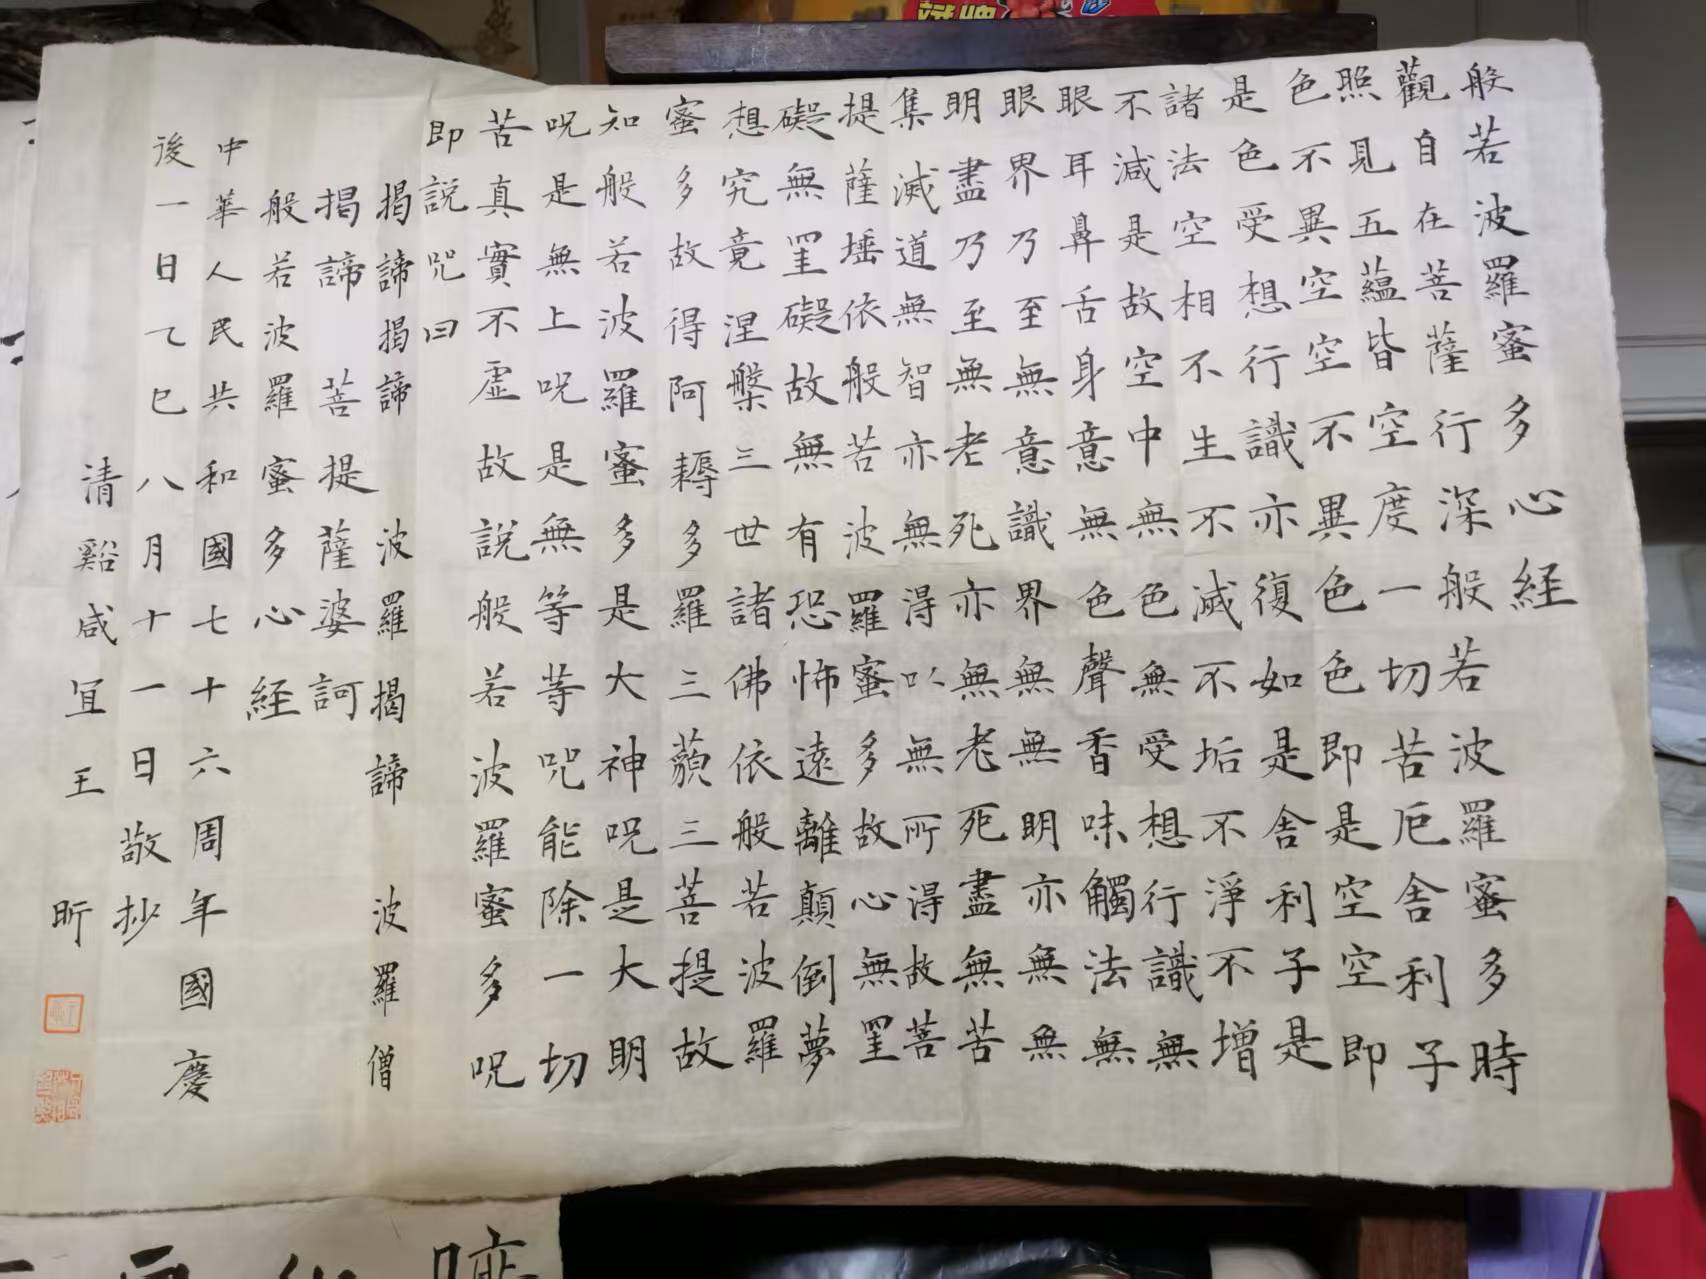 般若波羅蜜多心経
觀自在菩薩行深般若波羅蜜多時
照見五蘊皆空度一切苦厄舍利子
色不異空空不異色色即是空空即
是色受想行識亦復如是舍利子是
諸法空相不生不滅不垢不淨不增
不減是故空中無色無受想行識無
眼耳鼻舌身意無色聲香味觸法無
眼界乃至無意識界無無明亦無無
明盡乃至無老死亦無老死盡無苦
集滅道無智亦無得以無所得故菩
提薩埵依般若波羅蜜多故心無罣
礙無罣礙故無有恐怖遠離顛倒夢
想究竟涅槃三世諸佛依般若波羅
蜜多故得阿耨多羅三藐三菩提故
知般若波羅蜜多是大神咒是大明
咒是無上咒是無等等咒能除一切
苦真實不虛故說般若波羅蜜多咒
即說咒曰
揭諦揭諦 波羅揭諦 波羅僧
揭諦 菩提薩婆訶
般若波羅蜜多心経
中華人民共和國七十六周年國慶
後一日乙巳八月十一日敬抄
清谿咸宜王昕